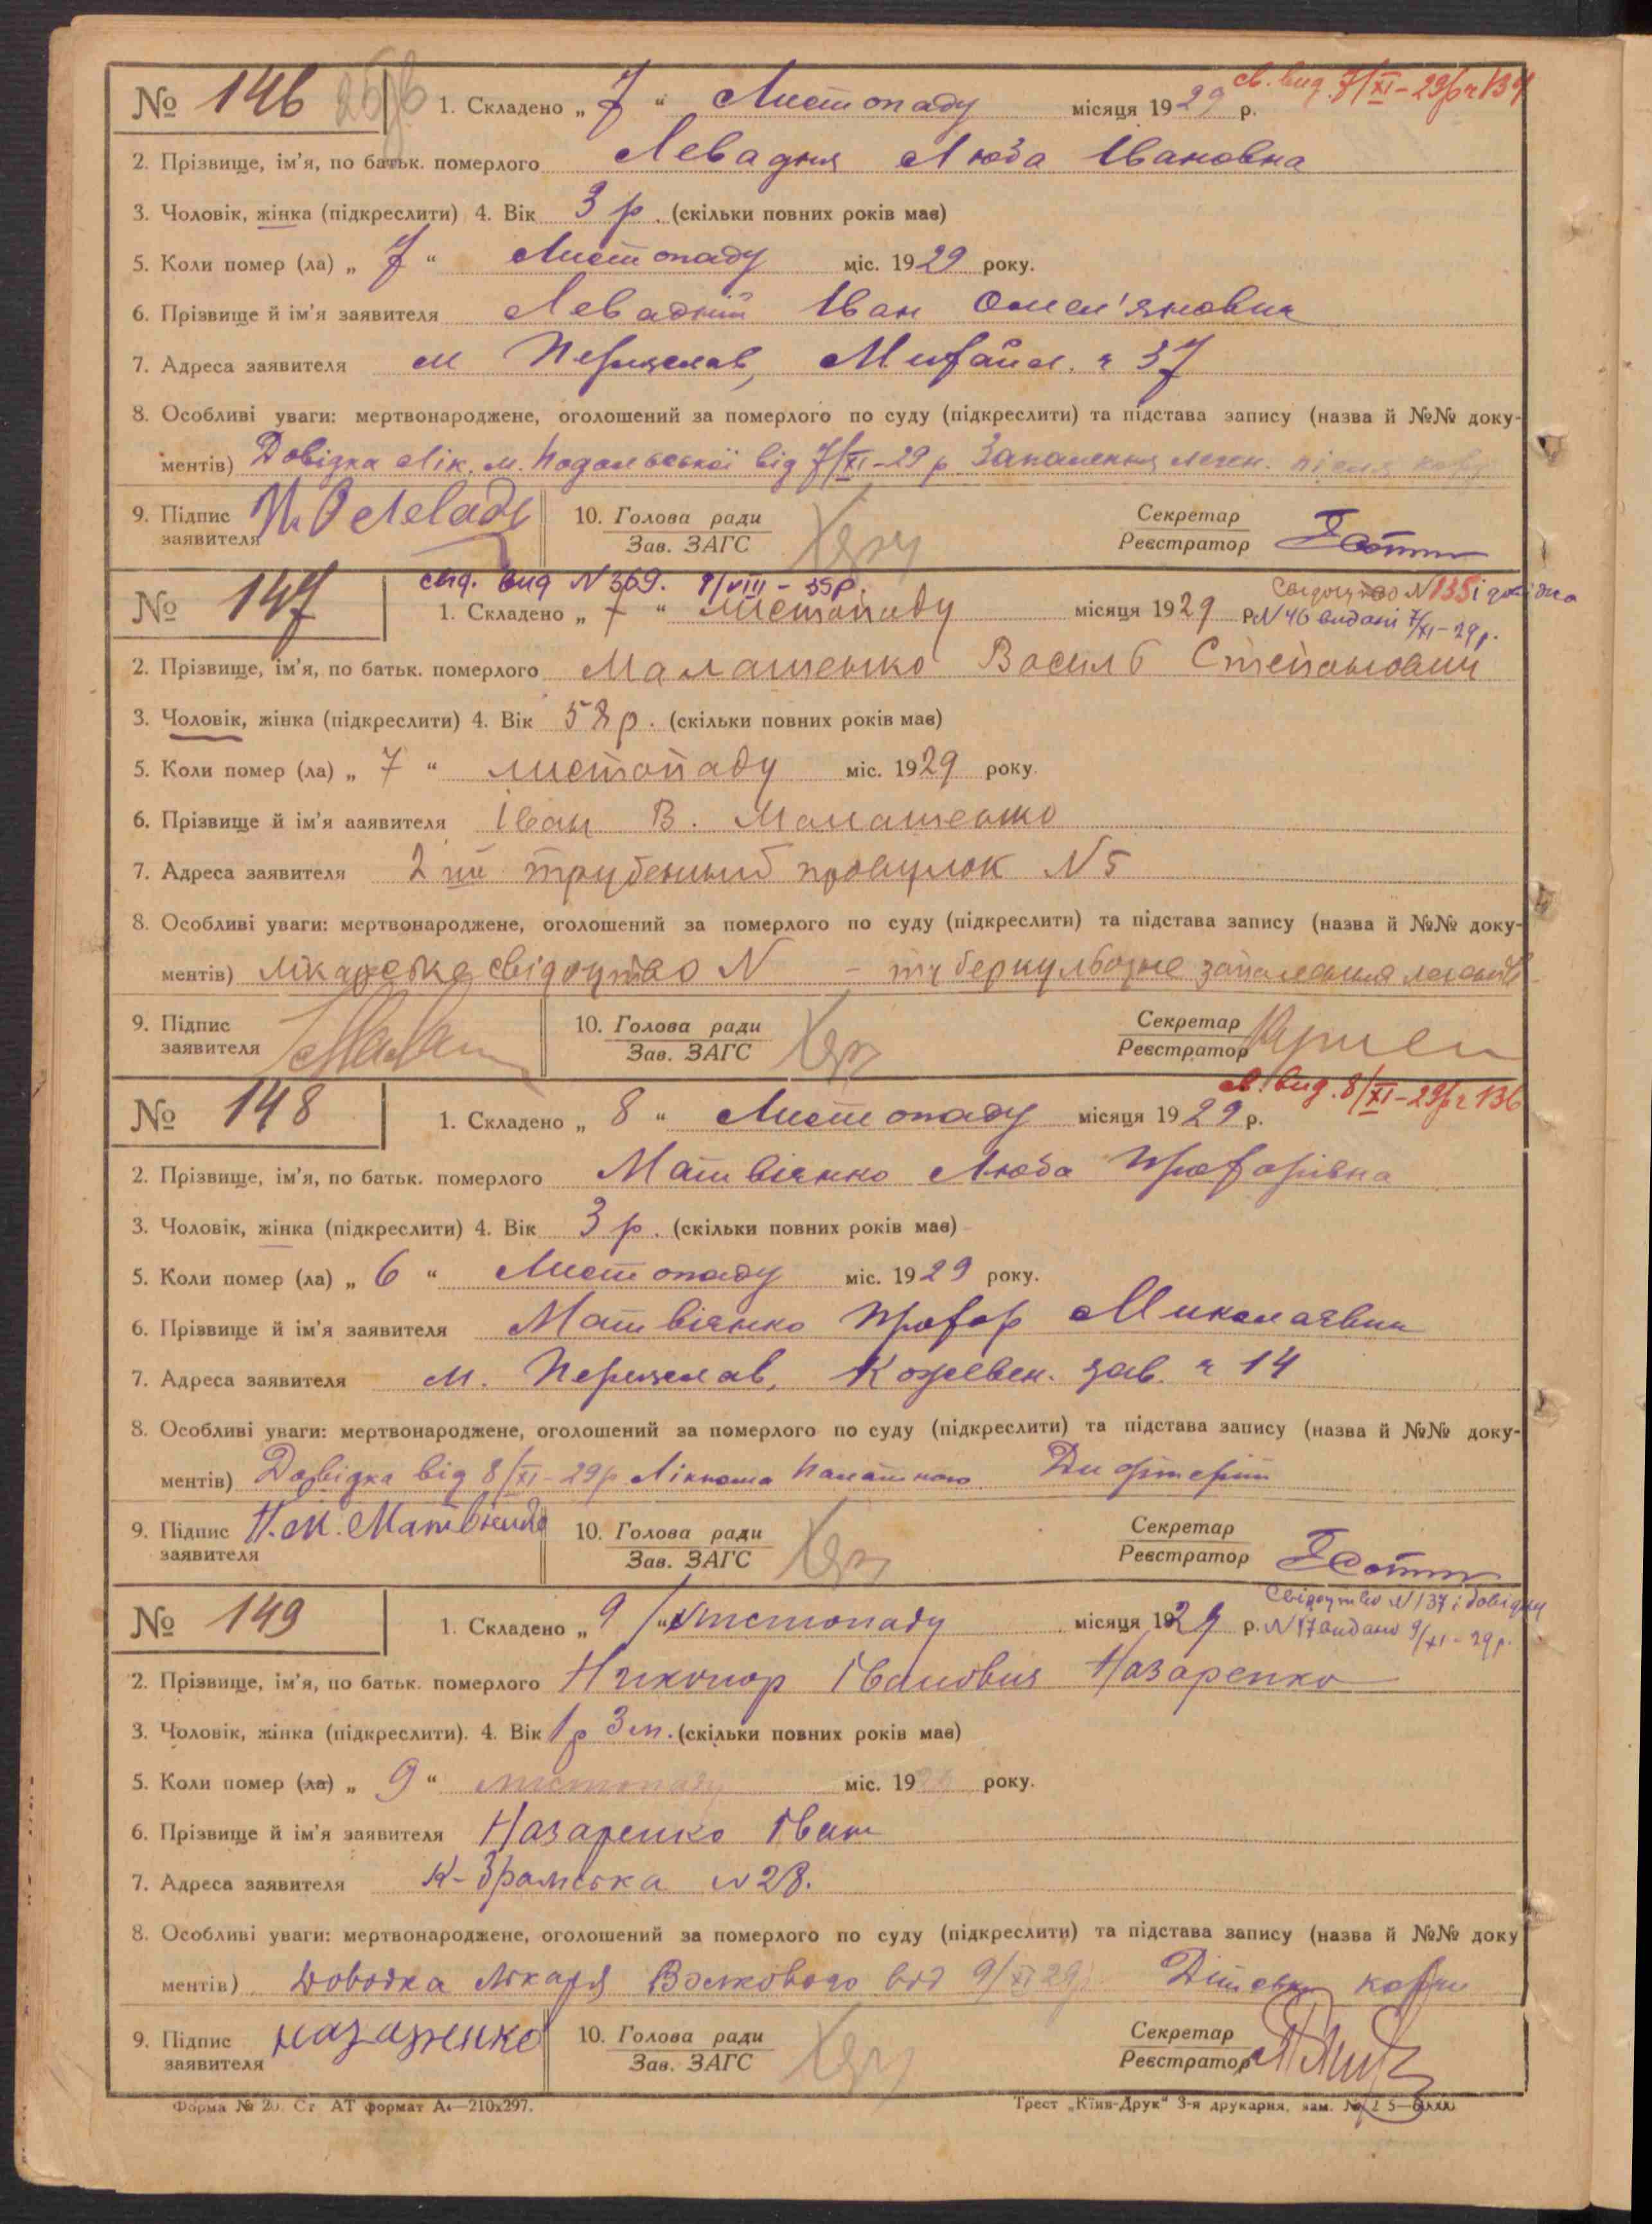 № 146 1. Складено „ 7 “ Листопаду місяця 1929 р. св. вид. 7/XI-29р ч 134
2. Прізвище, ім’я, по батьк. померлого Левадня Люба Івановна
3. Чоловік, жінка (підкреслити) 4. Вік 3 р. (скільки повних років має)
5. Коли помер (ла) „ 7 “ Листопаду міс. 1929 року.
6. Прізвище й ім’я заявителя Левадній Іван Омел'янович
7. Адреса заявителя м Переяслав, Михайл. ч 37
8. Особливі уваги: мертвонароджене, оголошений за померлого по суду (підкреслити) та підстава запису (назва й №№ доку-
ментів) Довідка лік. м. Подольської від 7/XI-29 р Запалення леген. після кору
9. Підпис 10. Голова ради Секретар
заявителя Зав. ЗАГС Реєстратор
свід. вид N 369. 9/VIII - 35р. Свідоцтво N 135 і довідка
№ 147 1. Складено „ 7 “ листопаду місяця 1929 р. N 46 видані 7/XI-29р.
2. Прізвище, ім’я, по батьк. померлого Малашенко Василь Степанович
3. Чоловік, жінка (підкреслити) 4. Вік 58 р. (скільки повних років має)
5. Коли помер (ла) „ 7 “ листопаду міс. 1929 року.
6. Прізвище й ім’я заявителя Іван В. Малашенко
7. Адреса заявителя 2 ий провулок N 5
8. Особливі уваги: мертвонароджене, оголошений за померлого по суду (підкреслити) та підстава запису (назва й №№ доку-
ментів) лікарське свідоцтво N – туберкульозне запалення легенів
9. Підпис 10. Голова ради Секретар
заявителя Зав. ЗАГС Реєстратор
№ 148 1. Складено „ 8 “ Листопаду місяця 1929 р. св. вид. 8/XI-29р ч 136
2. Прізвище, ім’я, по батьк. померлого Матвієнко Люба Прохорівна
3. Чоловік, жінка (підкреслити) 4. Вік 3 р. (скільки повних років має)
5. Коли помер (ла) „ 6 “ Листопаду міс. 1929 року.
6. Прізвище й ім’я заявителя Матвієнко Прохор Миколаєвич
7. Адреса заявителя м. Переяслав, Кожевен. зав. ч 14
8. Особливі уваги: мертвонароджене, оголошений за померлого по суду (підкреслити) та підстава запису (назва й №№ доку-
ментів) Довідка від 8/XI-29р Дифтерит
9. Підпис 10. Голова ради Секретар
заявителя Зав. ЗАГС Реєстратор
Свідоцтво N 137 і довідку
№ 149 1. Складено „ 9 “ листопаду місяця 1929 р. N 17 видано 9/XI-29р.
2. Прізвище, ім’я, по батьк. померлого Никонор Іванович Назаренко
3. Чоловік, жінка (підкреслити). 4. Вік 1 р 3 м. (скільки повних років має)
5. Коли помер (ла) „ 9 “ листопаду міс. 1929 року.
6. Прізвище й ім’я заявителя Назаренко Іван
7. Адреса заявителя N 28.
8. Особливі уваги: мертвонароджене, оголошений за померлого по суду (підкреслити) та підстава запису (назва й №№ доку
ментів) Довідка лікаря Волкового від 9/XI 29р.
9. Підпис назаренко 10. Голова ради Секретар
заявителя Зав. ЗАГС Реєстратор
Форма № 20. Ст. АТ формат А4—210х297. Трест „Київ-Друк“ 3-я друкарня, зам. №